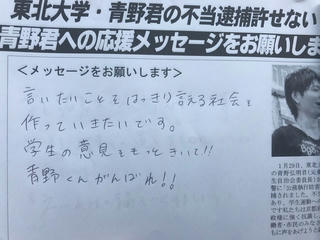 東北大学・青野君の不当逮捕許せない
青野君への応援メッセージをお願いしま
＜メッセージをお願いします＞
言いたいことをはっきり言える社会を
作っていきたいです。
学生の意見をもっときいて!!
青野くんがんばれ!!
1月29日、東北大